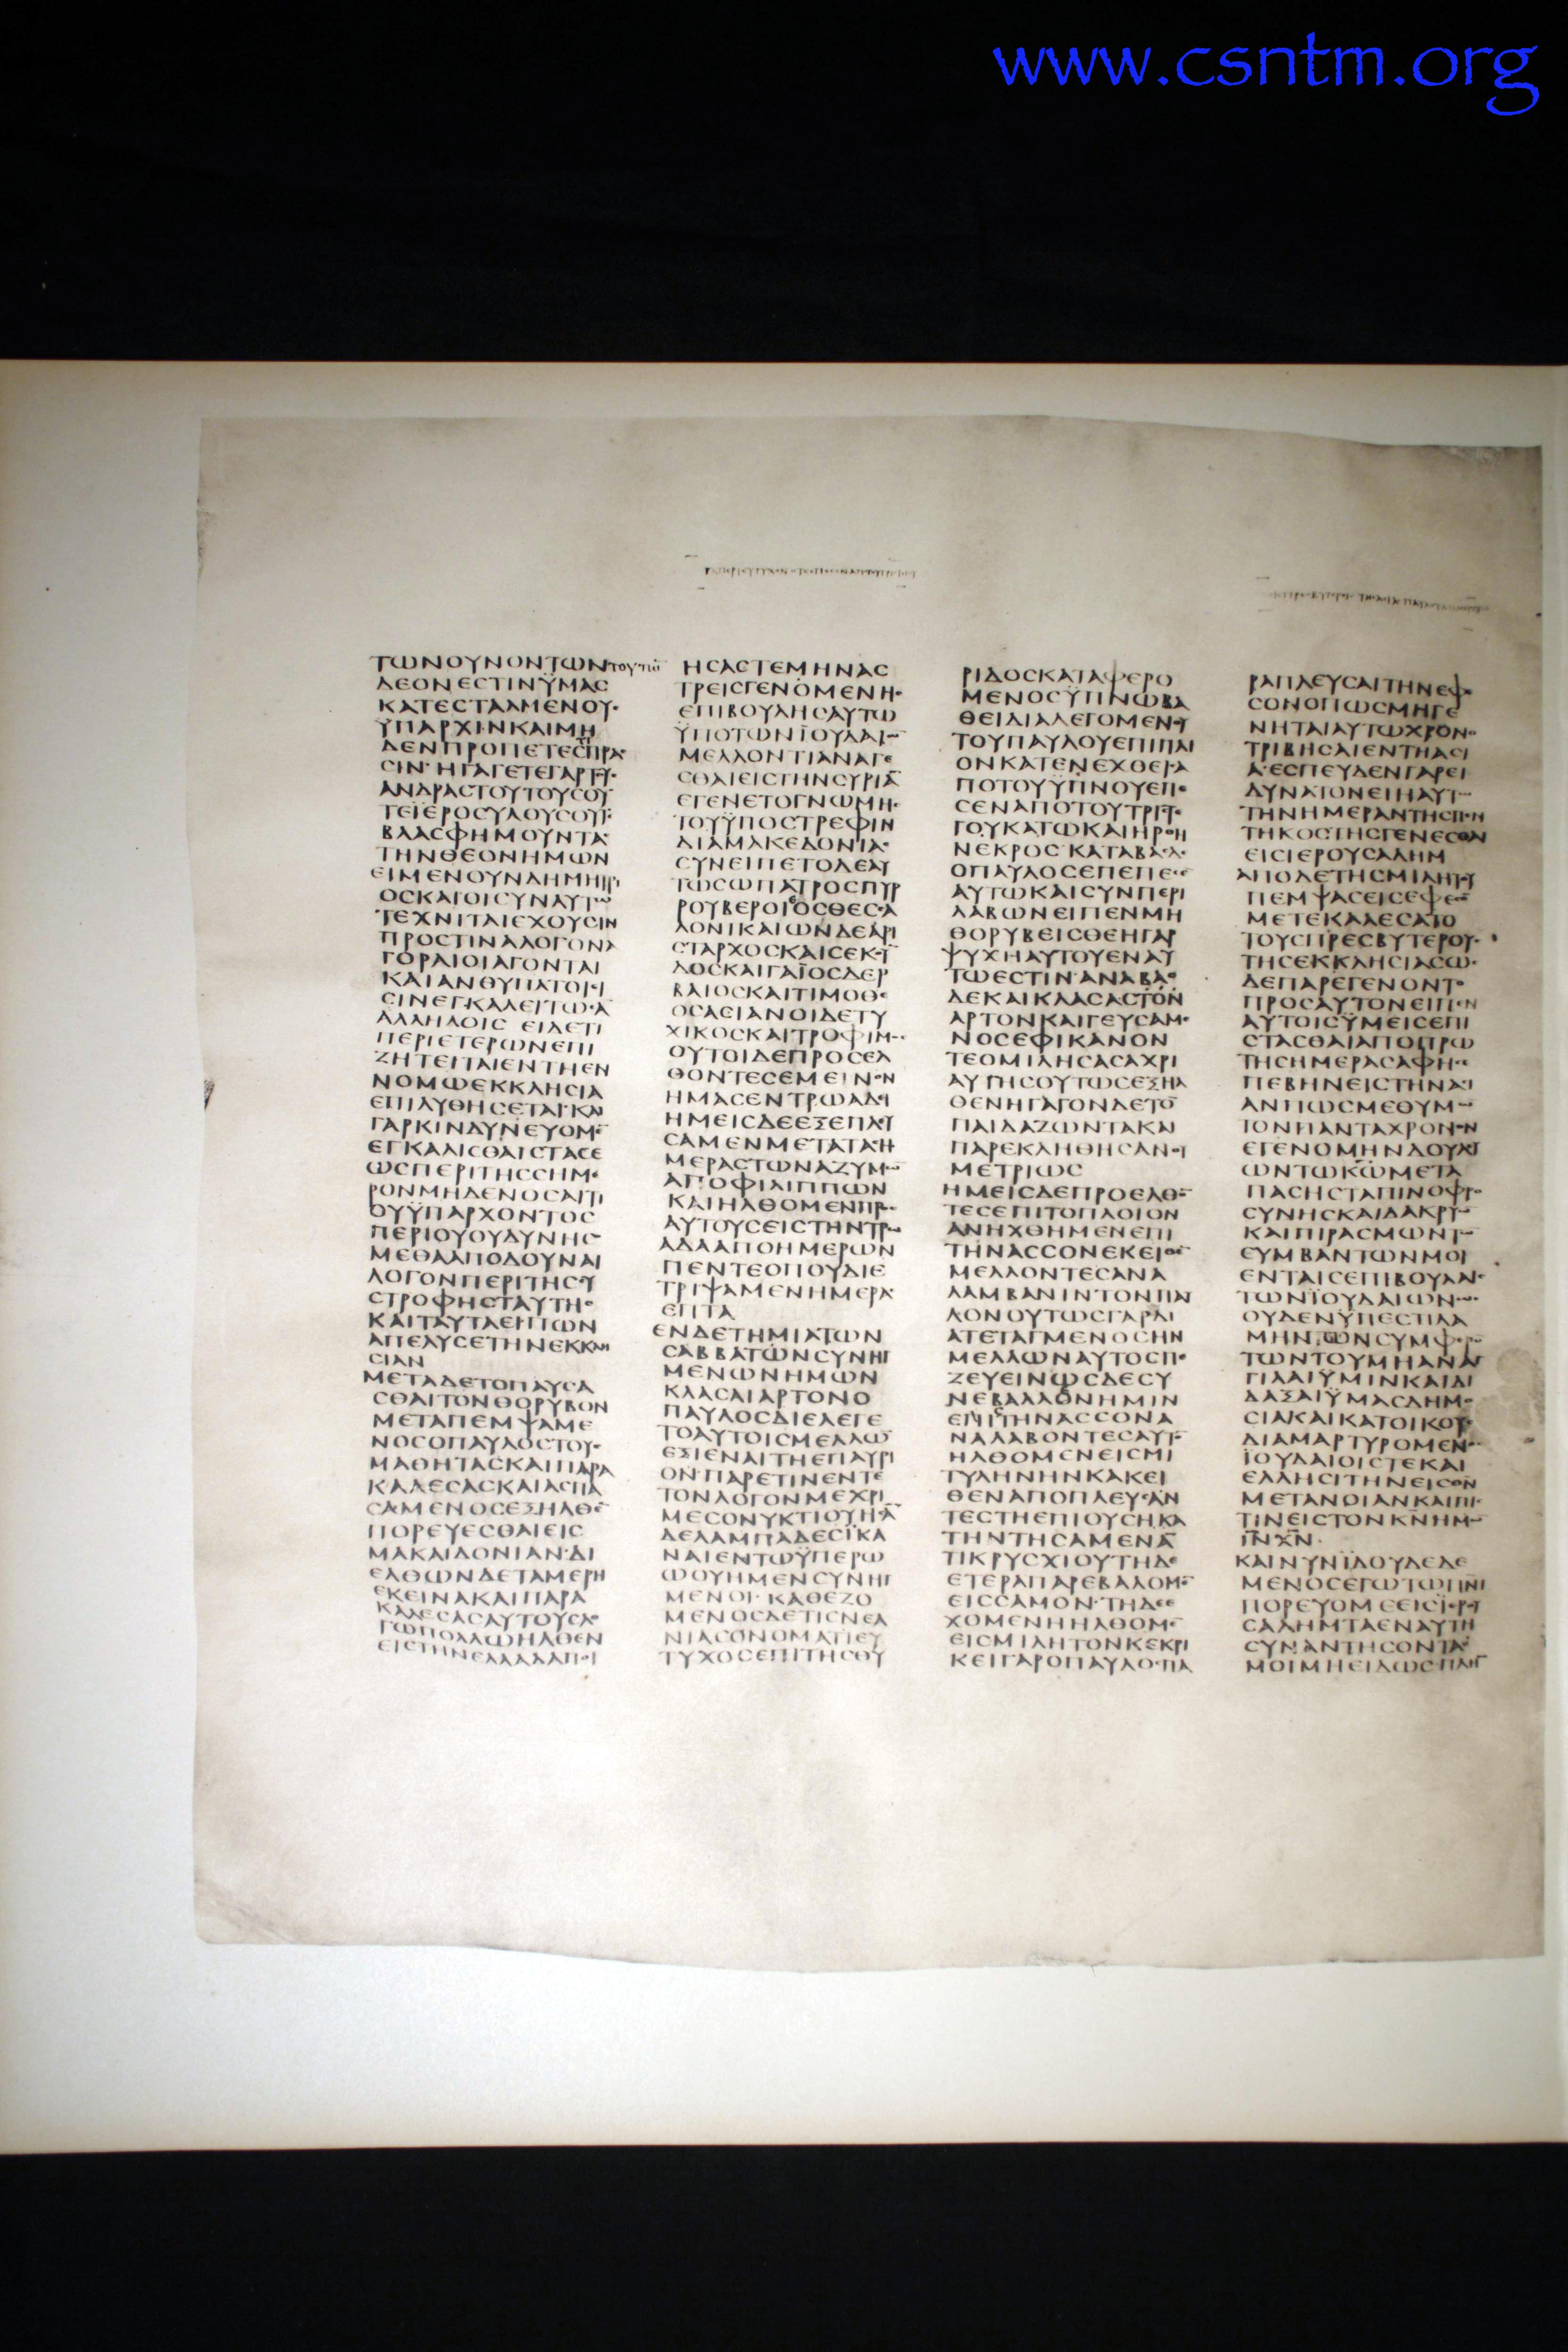 www.csntm.org
ΤΩΝΟΥΝΟΝΤΩΝΤΟΥΤΩ
ΔΕΟΝΕCΤΙΝΫΜΑC
ΚΑΤΕCΤΑΛΜΕΝΟΥC
ΥΠΑΡΧΙΝΚΑΙΜΗ
ΔΕΝΠΡΟΠΕΤΕCΠΡΑ
CΙΝ·ΗΓΑΓΕΤΕΓΑΡΤΟΥC
ΑΝΔΡΑCΤΟΥΤΟΥCΟΥ
ΤΕΪΕΡΟCΥΛΟΥCΟΥΤΕ
ΒΛΑCΦΗΜΟΥΝΤΑC
ΤΗΝΘΕΟΝΗΜΩΝ
ΕΙΜΕΝΟΥΝΔΗΜΗΤΡΙ
ΟCΚΑΙΟΙCΥΝΑΥΤΩ
ΤΕΧΝΙΤΑΙΕΧΟΥCΙΝ
ΠΡΟCΤΙΝΑΛΟΓΟΝΑ
ΓΟΡΑΙΟΙΑΓΟΝΤΑΙ
ΚΑΙΑΝΘΥΠΑΤΟΙΕΙ
CΙΝΕΓΚΑΛΕΙΤΩCΑ
ΑΛΛΗΛΟΙC ΕΙΔΕΤΙ
ΠΕΡΙΕΤΕΡΩΝΕΠΙ
ΖΗΤΕΙΤΑΙΕΝΤΗΕΝ
ΝΟΜΩΕΚΚΛΗCΙΑ
ΕΠΙΛΥΘΗCΕΤΑΙ·ΚΑΙ
ΓΑΡΚΙΝΔΥΝΕΥΟΜΕ
ΕΓΚΑΛΙCΘΑΙCΤΑCΕ
ΩCΠΕΡΙΤΗCCΗΜΕ
ΡΟΝΜΗΔΕΝΟCΑΙΤΙ
ΟΥΫΠΑΡΧΟΝΤΟC
ΠΕΡΙΟΥΟΥΔΥΝΗC
ΜΕΘΑΑΠΟΔΟΥΝΑΙ
ΛΟΓΟΝΠΕΡΙΤΗCCΥ
CΤΡΟΦΗCΤΑΥΤΗC
ΚΑΙΤΑΥΤΑΕΙΠΩΝ
ΑΠΕΛΥCΕΤΗΝΕΚΚΛΗ
CΙΑΝ
ΜΕΤΑΔΕΤΟΠΑΥCΑ
CΘΑΙΤΟΝΘΟΡΥΒΟΝ
ΜΕΤΑΠΕΜΨΑΜΕ
ΝΟCΟΠΑΥΛΟCΤΟΥC
ΜΑΘΗΤΑCΚΑΙΠΑΡΑ
ΚΑΛΕCΑCΚΑΙΑCΠΑ
CΑΜΕΝΟCΕΞΗΛΘΕ
ΠΟΡΕΥΕCΘΑΙΕΙC
ΜΑΚΑΙΔΟΝΙΑΝ·ΔΙ
ΕΛΘΩΝΔΕΤΑΜΕΡΗ
ΕΚΕΙΝΑΚΑΙΠΑΡΑ
ΚΑΛΕCΑCΑΥΤΟΥCΛΟ
ΓΩΠΟΛΛΩΗΛΘΕΝ
ΕΙCΤΗΝΕΛΛΑΔΑΠΟΙ
ΗCΑCΤΕΜΗΝΑC
ΤΡΕΙCΓΕΝΟΜΕΝΗC
ΕΠΙΒΟΥΛΗCΑΥΤΩ
ΫΠΟΤΩΝΪΟΥΔΑΙΩ
ΜΕΛΛΟΝΤΙΑΝΑΓΕ
CΘΑΙΕΙCΤΗΝCΥΡΙΑ
ΕΓΕΝΕΤΟΓΝΩΜΗC
ΤΟΥΫΠΟCΤΡΕΦΙΝ
ΔΙΑΜΑΚΕΔΟΝΙΑC
CΥΝΕΙΠΕΤΟΔΕΑΥ
ΤΩCΩΠΑΤΡΟCΠΥΡ
ΡΟΥΒΕΡΟΙΟCΘΕCCΑ
ΛΟΝΙΚΑΙΩΝΔΕΑΡΙ
CΤΑΡΧΟCΚΑΙCΕΚΟΥ
ΔΟCΚΑΙΓΑΪΟCΔΕΡ
ΒΑΙΟCΚΑΙΤΙΜΟΘΕ
ΟCΑCΙΑΝΟΙΔΕΤΥ
ΧΙΚΟCΚΑΙΤΡΟΦΙΜΟC
ΟΥΤΟΙΔΕΠΡΟCΕΛ
ΘΟΝΤΕCΕΜΕΙΝΟΝ
ΗΜΑCΕΝΤΡΩΑΔΙ
ΗΜΕΙCΔΕΕΞΕΠΛΕΥ
CΑΜΕΝΜΕΤΑΤΑCΗ
ΜΕΡΑCΤΩΝΑΖΥΜΩ
ΑΠΟΦΙΛΙΠΠΩΝ
ΚΑΙΗΛΘΟΜΕΝΠΡΟC
ΑΥΤΟΥCΕΙCΤΗΝΤΡΩ
ΑΔΑΑΠΟΗΜΕΡΩΝ
ΠΕΝΤΕΟΠΟΥΔΙΕ
ΤΡΙΨΑΜΕΝΗΜΕΡΑC
ΕΠΤΑ
ΕΝΔΕΤΗΜΙΑΤΩΝ
CΑΒΒΑΤΩΝCΥΝΗΓ
ΜΕΝΩΝΗΜΩΝ
ΚΛΑCΑΙΑΡΤΟΝΟ
ΠΑΥΛΟCΔΙΕΛΕΓΕ
ΤΟΑΥΤΟΙCΜΕΛΛΩ
ΕΞΙΕΝΑΙΤΗΕΠΑΥΡΙ
ΟΝ·ΠΑΡΕΤΙΝΕΝΤΕ
ΤΟΝΛΟΓΟΝΜΕΧΡΙ
ΜΕCΟΝΥΚΤΙΟΥΗCΑ
ΔΕΛΑΜΠΑΔΕCΪΚΑ
ΝΑΙΕΝΤΩΫΠΕΡΩ
ΩΟΥΗΜΕΝCΥΝΗΓ
ΜΕΝΟΙ· ΚΑΘΕΖΟ
ΜΕΝΟCΔΕΤΙCΝΕΑ
ΝΙΑCΟΝΟΜΑΤΙΕΥ
ΤΥΧΟCΕΠΙΤΗCΘΥ
ΡΙΔΟCΚΑΤΑΦΕΡΟ
ΜΕΝΟCΫΠΝΩΒΑ
ΘΕΙΔΙΑΛΕΓΟΜΕΝΟΥ
ΤΟΥΠΑΥΛΟΥΕΠΙΠΛΙ
ΟΝΚΑΤΕΝΕΧΘΕΙCΑ
ΠΟΤΟΥΫΠΝΟΥΕΠΕ
CΕΝΑΠΟΤΟΥΤΡΙCΤΕ
ΓΟΥΚΑΤΩΚΑΙΗΡΘΗ
ΝΕΚΡΟC·ΚΑΤΑΒΑCΔΕ
ΟΠΑΥΛΟCΕΠΕΠΕCΕ
ΑΥΤΩΚΑΙCΥΝΠΕΡΙ
ΛΑΒΩΝΕΙΠΕΝΜΗ
ΘΟΡΥΒΕΙCΘΕΗΓΑΡ
ΨΥΧΗΑΥΤΟΥΕΝΑΥ
ΤΩΕCΤΙΝ·ΑΝΑΒΑC
ΔΕΚΑΙΚΛΑCΑCΤΟΝ
ΑΡΤΟΝΚΑΙΓΕΥCΑΜΕ
ΝΟCΕΦΙΚΑΝΟΝ
ΤΕΟΜΙΛΗCΑCΑΧΡΙ
ΑΥΓΗCΟΥΤΩCΕΞΗΛ
ΘΕΝΗΓΑΓΟΝΔΕΤΟ
ΠΑΙΔΑΖΩΝΤΑΚΑΙ
ΠΑΡΕΚΛΗΘΗCΑΝΟΥ
ΜΕΤΡΙΩC
ΗΜΕΙCΔΕΠΡΟΕΛΘΟ
ΤΕCΕΠΙΤΟΠΛΟΙΟΝ
ΑΝΗΧΘΗΜΕΝΕΠΙ
ΤΗΝΑCCΟΝΕΚΕΙΘΕ
ΜΕΛΛΟΝΤΕCΑΝΑ
ΛΑΜΒΑΝΙΝΤΟΝΠΑΥ
ΛΟΝΟΥΤΩCΓΑΡΔΙ
ΑΤΕΤΑΓΜΕΝΟCΗΝ
ΜΕΛΛΩΝΑΥΤΟCΠΕ
ΖΕΥΕΙΝΩCΔΕCΥ
ΝΕΒΑΛΛΟΝΗΜΙΝ
ΕΠΙΤΗΝΑCCΟΝΑ
ΝΑΛΑΒΟΝΤΕCΑΥΤΟ
ΗΛΘΟΜΕΝΕΙCΜΙ
ΤΥΛΗΝΗΝΚΑΚΕΙ
ΘΕΝΑΠΟΠΛΕΥCΑΝ
ΤΕCΤΗΕΠΙΟΥCΗΚΑ
ΤΗΝΤΗCΑΜΕΝΑ
ΤΙΚΡΥCΧΙΟΥΤΗΔΕ
ΕΤΕΡΑΠΑΡΕΒΑΛΟΜΕ
ΕΙCCΑΜΟΝ·ΤΗΔΕΕ
ΧΟΜΕΝΗΗΛΘΟΜΕ
ΕΙCΜΙΛΗΤΟΝΚΕΚΡΙ
ΚΕΙΓΑΡΟΠΑΥΛΟCΠΑ
ΡΑΠΛΕΥCΑΙΤΗΝΕΦΕ
CΟΝΟΠΩCΜΗΓΕ
ΝΗΤΑΙΑΥΤΩΧΡΟΝΟ
ΤΡΙΒΗCΑΙΕΝΤΗΑCΙ
Α·ΕCΠΕΥΔΕΝΓΑΡΕΙ
ΔΥΝΑΤΟΝΕΙΗΑΥΤΩ
ΤΗΝΗΜΕΡΑΝΤΗCΠΕΝ
ΤΗΚΟCΤΗCΓΕΝΕCΘΑΙ
ΕΙCΙΕΡΟΥCΑΛΗΜ
ΑΠΟΔΕΤΗCΜΙΛΗΤΟΥ
ΠΕΜΨΑCΕΙCΕΦΕCΟ
ΜΕΤΕΚΑΛΕCΑΤΟ
ΤΟΥCΠΡΕCΒΥΤΕΡΟΥC
ΤΗCΕΚΚΛΗCΙΑCΩC
ΔΕΠΑΡΕΓΕΝΟΝΤΟ
ΠΡΟCΑΥΤΟΝΕΙΠΕΝ
ΑΥΤΟΙCΫΜΕΙCΕΠΙ
CΤΑCΘΑΙΑΠΟΠΡΩ
ΤΗCΗΜΕΡΑCΑΦΗCΕ
ΠΕΒΗΝΕΙCΤΗΝΑCΙ
ΑΝΠΩCΜΕΘΥΜΩ
ΤΟΝΠΑΝΤΑΧΡΟΝΟΝ
ΕΓΕΝΟΜΗΝΔΟΥΛΕΥ
ΩΝΤΩΚΩΜΕΤΑ
ΠΑCΗCΤΑΠΙΝΟΦΡΟ
CΥΝΗCΚΑΙΔΑΚΡΥΩ
ΚΑΙΠΙΡΑCΜΩΝΤΩ
CΥΜΒΑΝΤΩΝΜΟΙ
ΕΝΤΑΙCΕΠΙΒΟΥΛΑΙC
ΤΩΝΪΟΥΔΑΙΩΝΩC
ΟΥΔΕΝΫΠΕCΤΙΛΑ
ΜΗΝΤΩΝCΥΜΦΕΡΟ
ΤΩΝΤΟΥΜΗΑΝΑΓ
ΓΙΛΑΙΫΜΙΝΚΑΙΔΙ
ΔΑΞΑΙΫΜΑCΔΗΜΟ
CΙΑΚΑΙΚΑΤΟΙΚΟΥC
ΔΙΑΜΑΡΤΥΡΟΜΕΝΟC
ΪΟΥΔΑΙΟΙCΤΕΚΑΙ
ΕΛΛΗCΙΤΗΝΕΙCΘΝ
ΜΕΤΑΝΟΙΑΝΚΑΙΠΙ
ΤΙΝΕΙCΤΟΝΚΝΗΜΩ
ΙΝΧΝ·
ΚΑΙΝΥΝΪΔΟΥΔΕΔΕ
ΜΕΝΟCΕΓΩΤΩΠΝΙ
ΠΟΡΕΥΟΜΕΕΙCΙΕΡΟΥ
CΑΛΗΜΤΑΕΝΑΥΤΗ
CΥΝΑΝΤΗCΟΝΤΑ
ΜΟΙΜΗΕΙΔΩCΠΛΗΝ